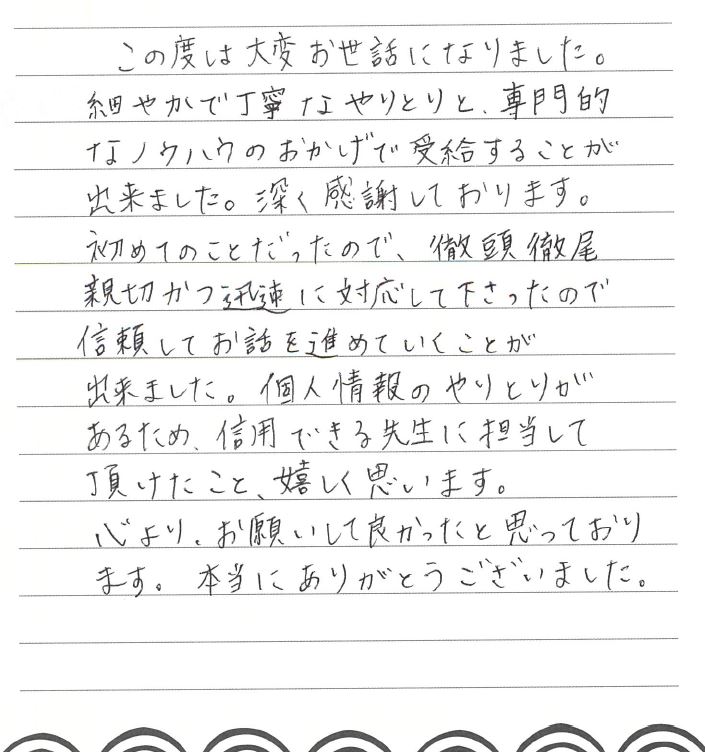 この度は大変お世話になりました。
細やかで丁寧なやりとりと、専門的
なノウハウのおかげで受給することが
出来ました。深く感謝しております。
初めてのことだったので、徹頭徹尾
親切かつ迅速に対応して下さったので
信頼してお話を進めていくことが
出来ました。個人情報のやりとりが
あるため、信用できる先生に担当して
頂けたこと、嬉しく思います。
心より、お願いして良かったと思っており
ます。本当にありがとうございました。